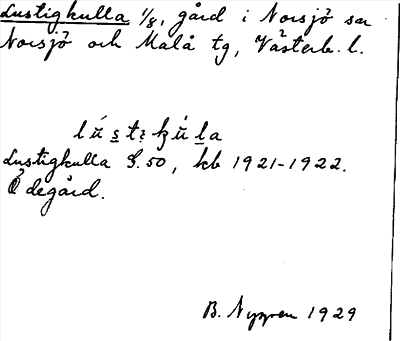 Lustigkulla 1/8, gård i Norsjö sn
Norsjö och Malå tg, Västerb. l.
lústikúla
Lustigkulla S. 50, kb 1921-1922.
Ödegård.
B. Nygren 1929